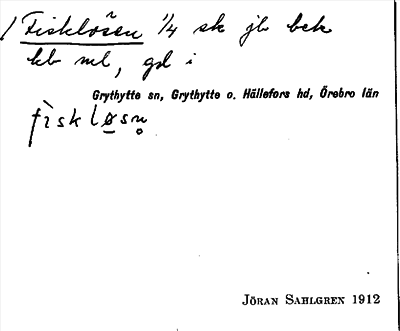 / Fisklösen 1/4 sk jb bek
kb ml, gd i
Grythytte sn, Grythytte o. Hällefors hd, Örebro län
fìskløsn̥
JÖRAN SAHLGREN 1912